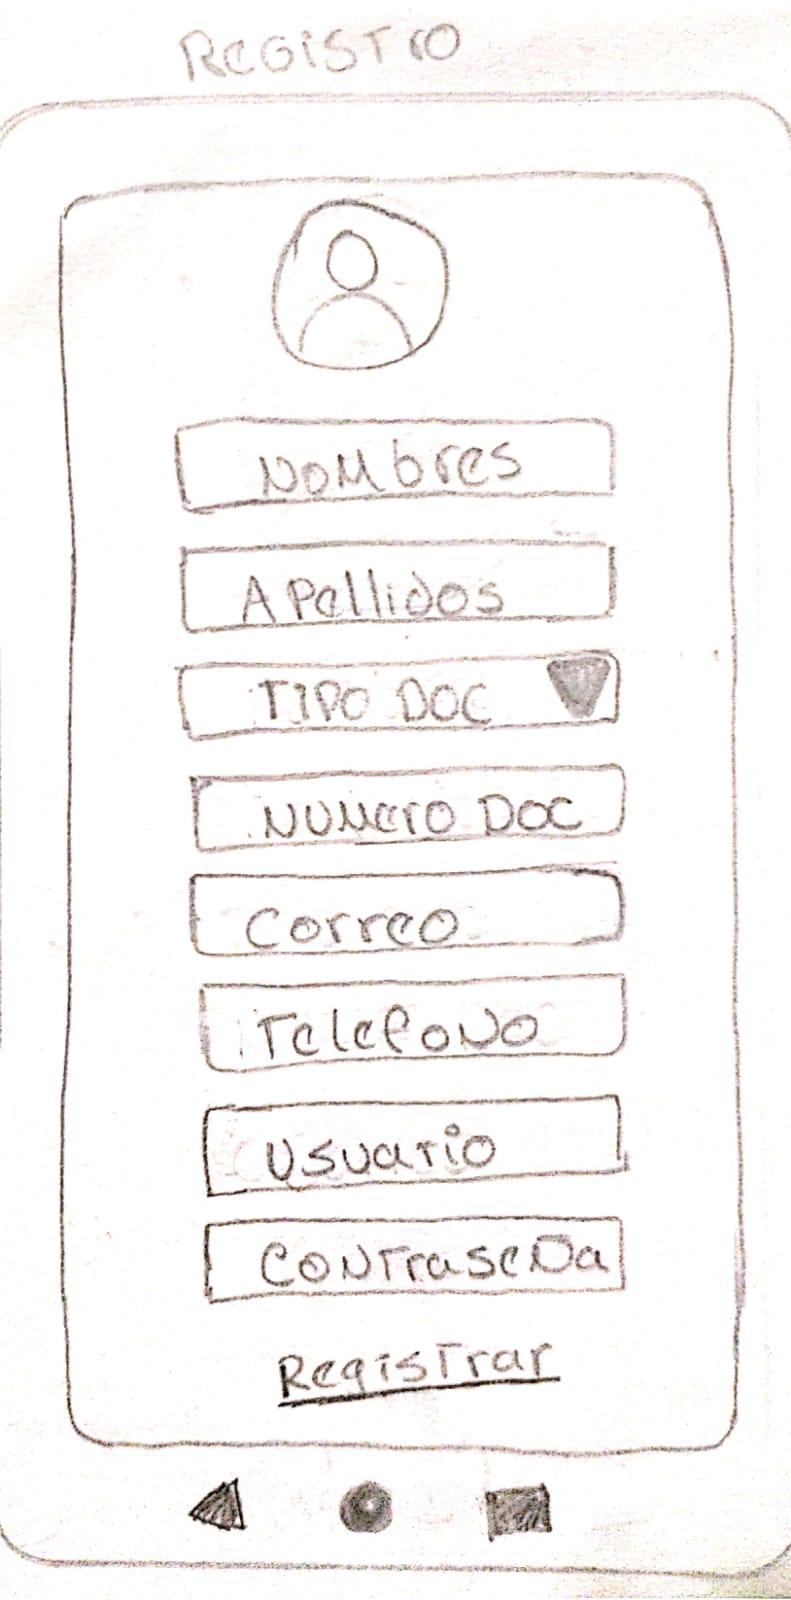 Registro
Nombres
Apellidos
Tipo Doc
Numero Doc
Correo
Telefono
Usuario
Contraseña
Registrar